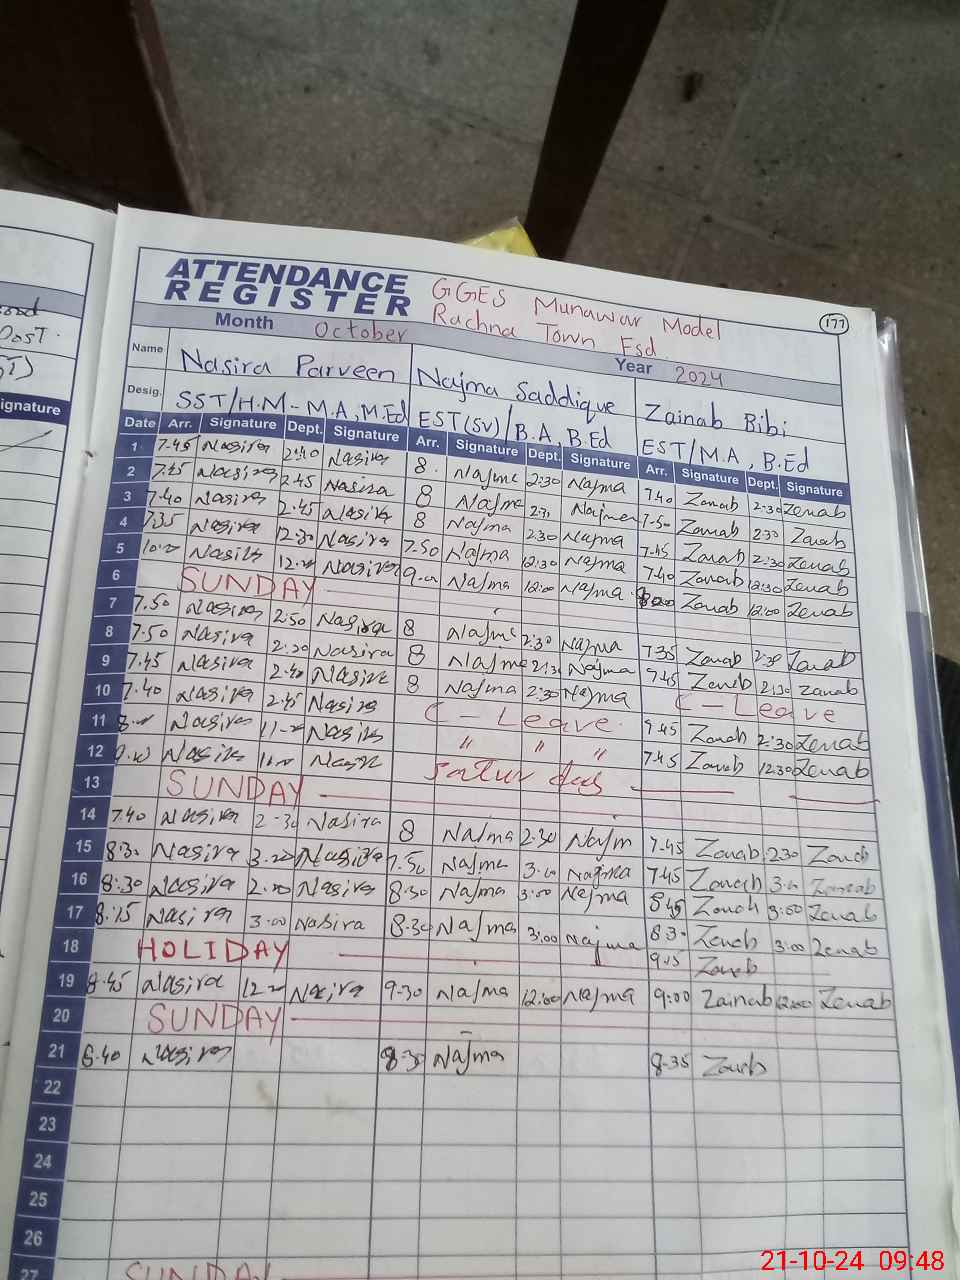 ATTENDANCE
REGISTER
GGES Munawar Model
Rachna Town Fsd
177
Month October
Year 2024
Name Nasira Parveen Najma Saddique Zainab Bibi
Desig. SST/H.M - M.A, M.Ed EST(SV)/B.A, B.Ed EST/M.A, B.Ed
Date Arr. Signature Dept. Signature Arr. Signature Dept. Signature Arr. Signature Dept. Signature
1 7.45 Nasira 2:40 Nasira 8. Najma 2:30 Najma 7.40 Zenab 2:30 Zenab
2 7.45 Nasira 2.45 Nasira 8 Najma Najma 7.50 Zenab 2:30 Zenab
3 7.40 Nasira 2.45 Nasira 8 Najma 2.30 Najma 7.45 Zenab 2:30 Zenab
4 7.35 Nasira 12.30 Nasira 7.50 Najma 12:30 Najma 7.40 Zenab 12:30 Zenab
5 Nasira Nasira 9.00 Najma 12:00 Najma Zenab 12:00 Zenab
6 SUNDAY
7 7.50 Nasira 2.50 Nasira 8 Najma 2:30 Najma 7.35 Zenab 2:30 Zenab
8 7.50 Nasira Nasira 8 Najma 2:30 Najma 7.45 Zenab 2:30 Zenab
9 7.45 Nasira 2.40 Nasira 8 Najma 2:30 Najma C - Leave
10 7.40 Nasira 2.45 Nasira C - Leave 7.45 Zenab 2:30 Zenab
11 Nasira Nasira " " " 7.45 Zenab 12.30 Zenab
12 Nasira Nasira
13 SUNDAY
14 7.40 Nasira 2-30 Nasira 8 Najma 2.30 Najma 7.45 Zenab 2.30 Zenab
15 8.30 Nasira 3.00 Nasira 7.50 Najma 3.00 Najma 7.45 Zenab 3.00 Zenab
16 8:30 Nasira Nasira 8:30 Najma 3:00 Najma 8.45 Zenab 3:00 Zenab
17 8.15 Nasira 3.00 Nasira 8.30 Najma 3:00 Najma 8.30 Zenab 3:00 Zenab
18 HOLIDAY 9.15 Zenab
19 8.45 Nasira Nasira 9-30 Najma 12:00 Najma 9:00 Zainab 12:00 Zenab
20 SUNDAY
21 Nasira 8.30 Najma 8.35 Zenab
22
23
24
25
26
27 SUNDAY
ignature
21-10-24 09:48